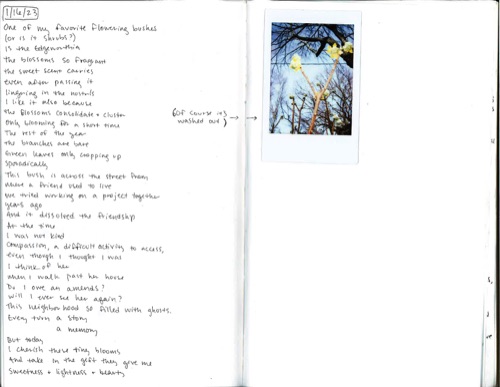 1/16/23
One of my favorite flowering bushes
(or is it shrubs?)
Is the Edgeworthia
The blossoms so fragrant
the sweet scent carries
even after passing it
lingering in the nostrils
I like it also because
the blossoms consolidate + cluster
Only blooming for a short time
The rest of the year
the branches are bare
Green leaves only cropping up
sporadically
This bush is across the street from
where a friend used to live
We tried working on a project together
years ago
And it dissolved the friendship
At the time
I was not kind
Compassion, a difficult activity to access,
even though I thought I was
I think of her
when I walk past her house
Do I owe an amends?
Will I ever see her again?
This neighborhood so filled with ghosts.
Every turn a story
a memory
But today
I cherish these tiny blooms
And take in the gift they give me
Sweetness + lightness + beauty
(Of course it's
washed out)